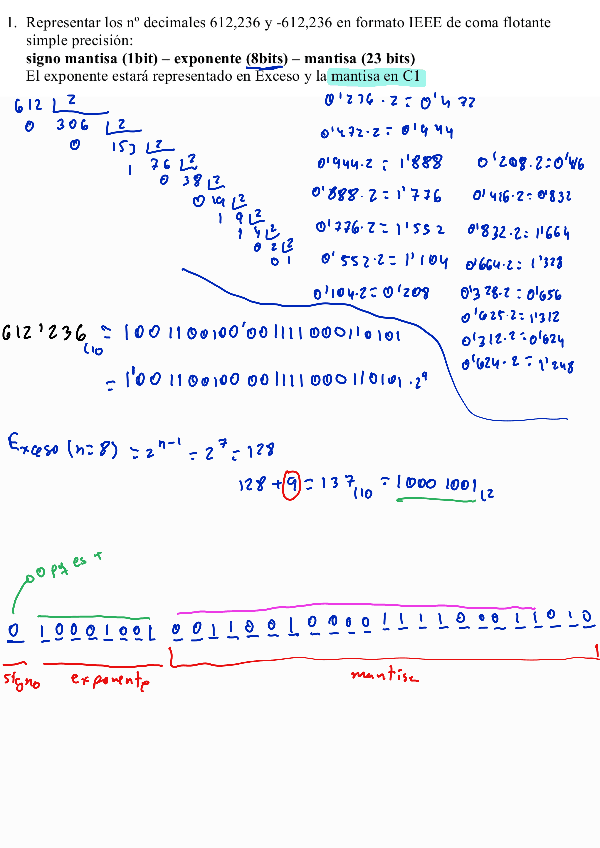 1. Representar los nº decimales 612,236 y -612,236 en formato IEEE de coma flotante
simple precisión:
signo mantisa (1bit) – exponente (8bits) – mantisa (23 bits)
El exponente estará representado en Exceso y la mantisa en C1
612 2
0 306 2
0 153 2
1 76 2
0 38 2
0 19 2
1 9 2
1 4 2
0 2 2
0 1
0'236·2=0'472
0'472·2=0'944
0'944·2=1'888
0'888·2=1'776
0'776·2=1'552
0'552·2=1'104
0'104·2=0'208
0'208·2=0'416
0'416·2=0'832
0'832·2=1'664
0'664·2=1'328
0'328·2=0'656
0'625·2=1'312
0'312·2=0'624
0'624·2=1'248
612'236(10 = 1001100100'001111000110101
= 1'001100100001111000110101·2⁹
Exceso (n=8) = 2ⁿ⁻¹ = 2⁷ = 128
128+9=137(10 = 10001001(2
0 pq es +
0 10001001 00110010000111100011010
signo exponente mantisa